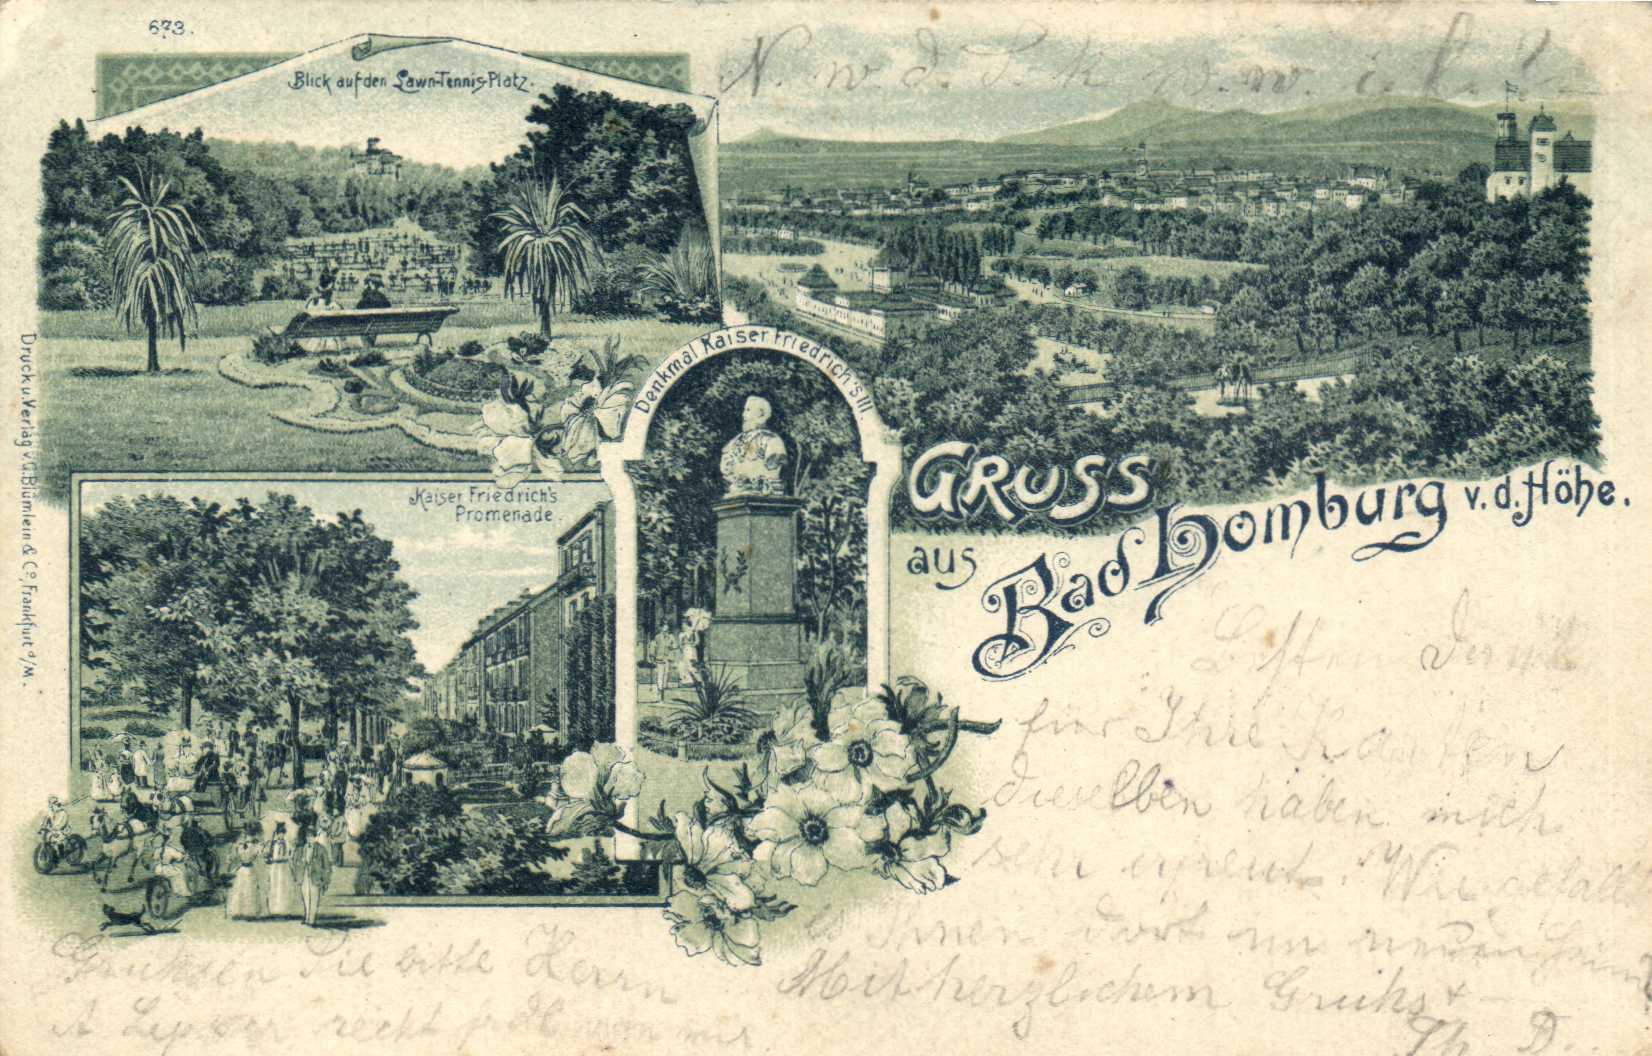 673.
Blick auf den Lawn-Tennis-Platz.
N. w. d. S. k. w. w. i. d. !
Denkmal Kaiser Friedrich's III.
Kaiser Friedrich's
Promenade.
Druck u. Verlag v. G. Blümlein & Co, Frankfurt a/M.
GRUSS
aus
Bad Homburg v. d. Höhe.
Besten Dank
für Ihre Karten
dieselben haben mich
sehr erfreut. Wie gefällt
es Ihnen dort im neuen
Mit herzlichem Gruhs
Th. D.
Gruhsen Sie bitte Herrn
A. recht von mir.